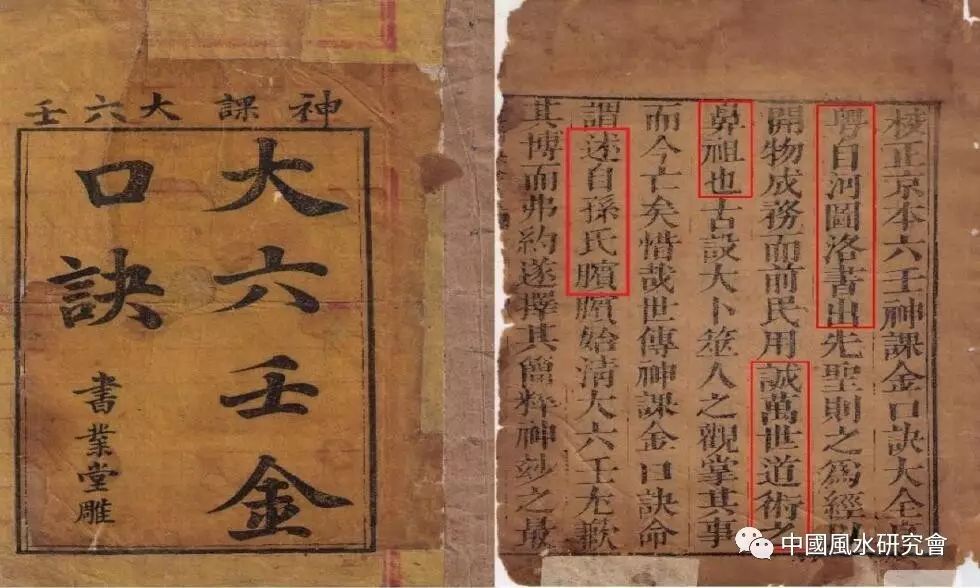 神課大六壬
大六壬金
口訣
書業堂雕
校正京本六壬神課金口訣大全
粤自河圖洛書出先聖則之為經以
開物成務而前民用誠萬世道術之
鼻祖也古設大卜筮人之觀掌其事
而今亡矣惜哉世傳神課金口訣命
謂述自孫氏臏臏始淸大六壬充歉
其博而弗約遂擇其簡粹神妙之最
中國風水研究會